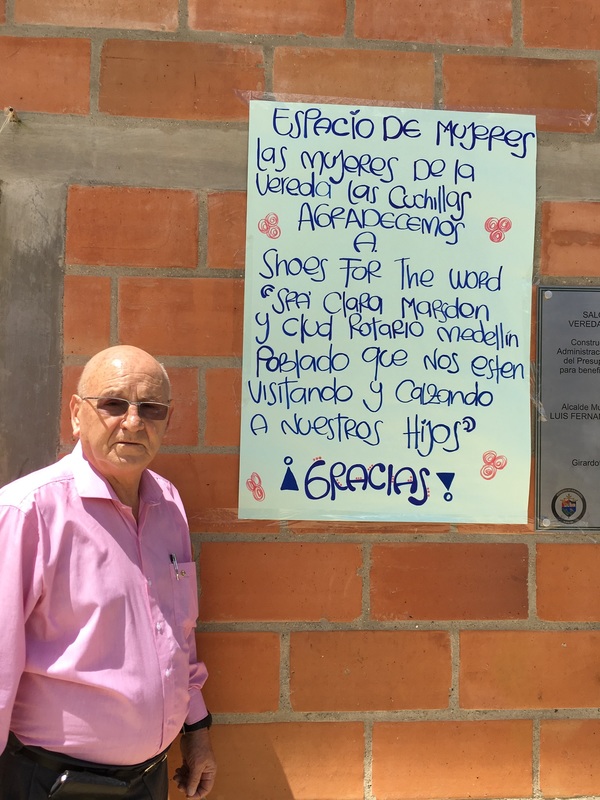 ESPACIO DE MUJERES
Las mujeres De la
Vereda Las Cuchillas
AGRADECEMOS
A
Shoes For The word
"Sra Clara Marsden
y Clud Rotario medellín
Poblado que nos esten
Visitando y Calzando
A Nuestros Hijos"
¡GRACIAS!
SAL
VEREDA
Constru
Administrac
del Presup
para benef
Alcalde Mu
LUIS FERNAN
Girardo